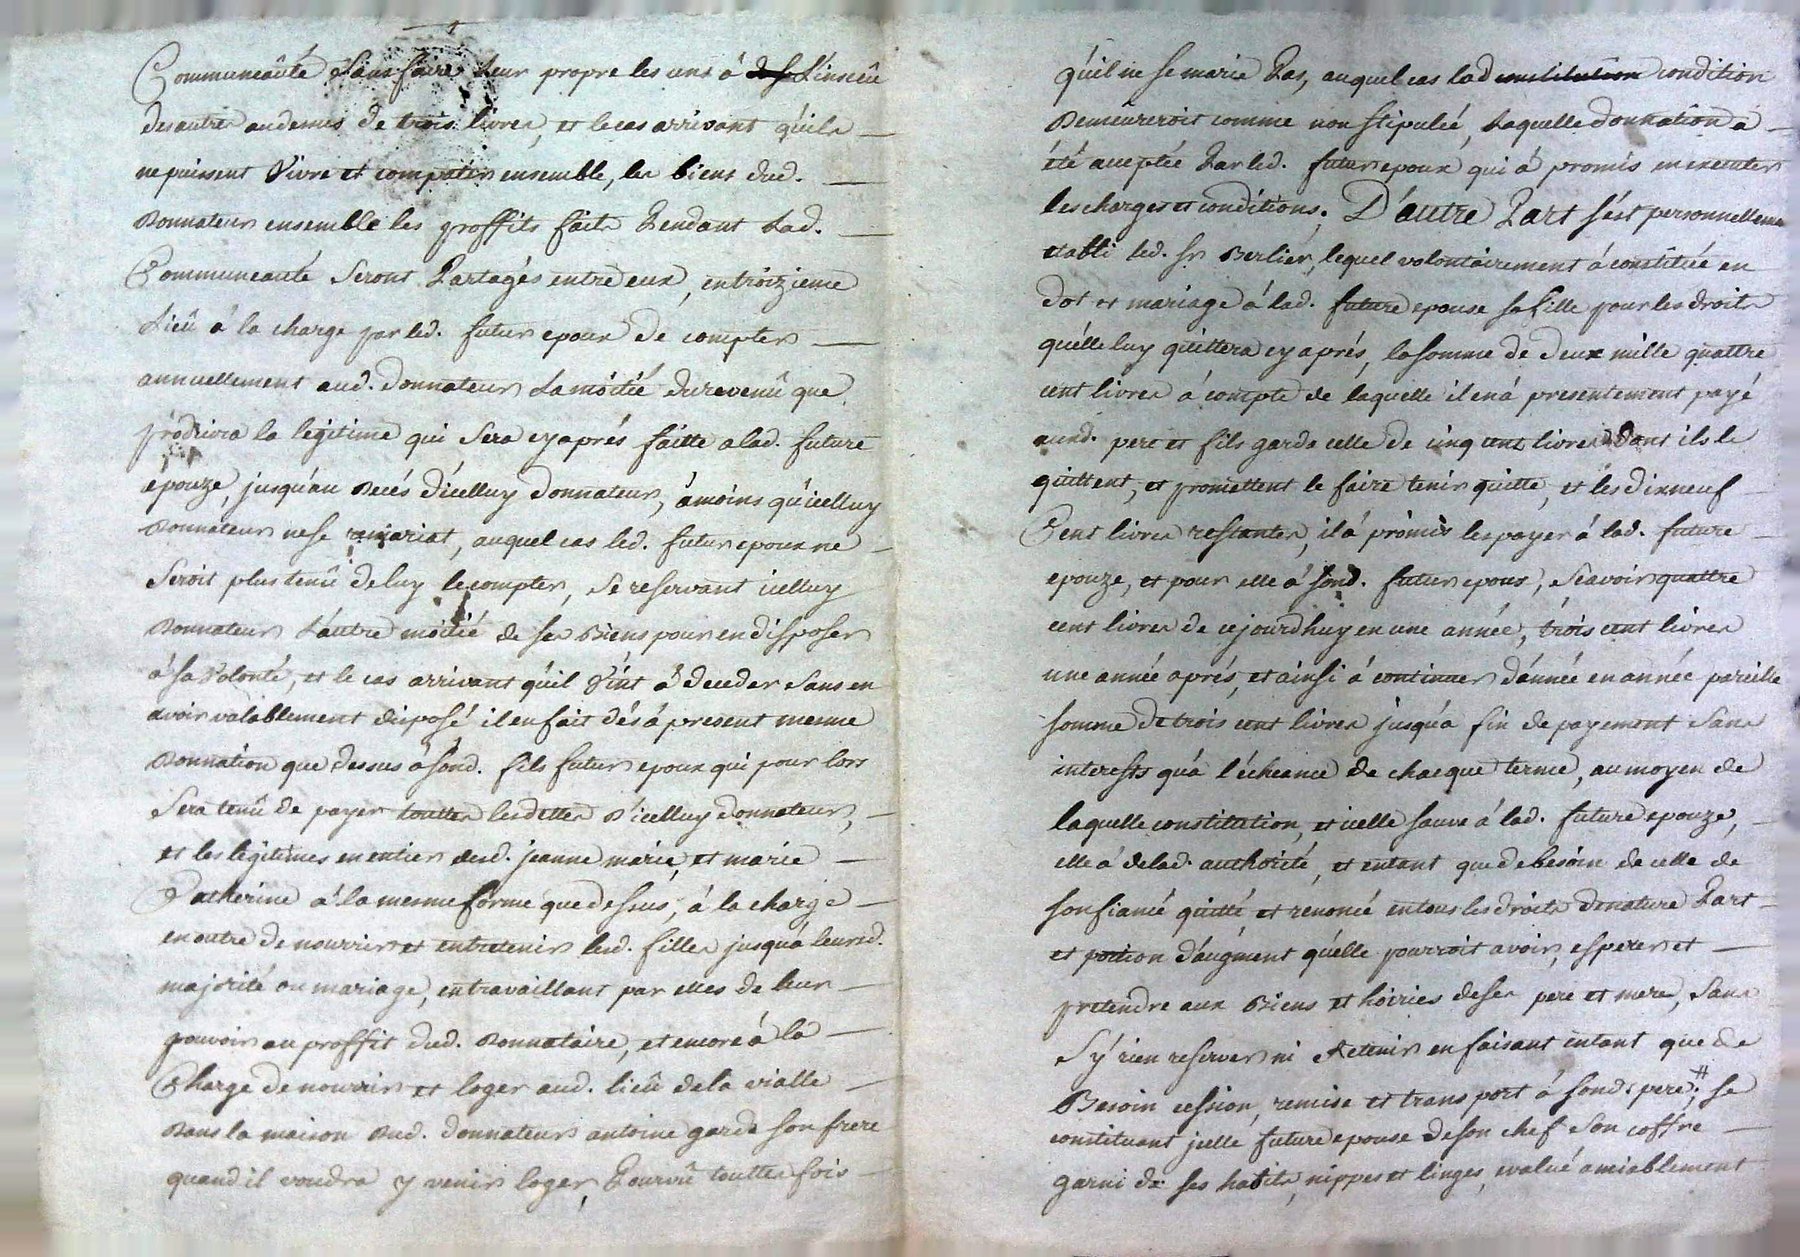 Communeauté sans faire leur propre les uns á de s L'inscéu
des autres audessus de trois livres, et le cas arrivant qu'ils
ne puissent Vivre et compatir ensemble, les biens dud.
Donnateur ensemble les proffits faits Pendant Lad.
Communeauté Seront Partagés entre eux, en troizieme
Lieû á la charge par led. futur epoux de compter
annuellement aud. Donnateur La móitié du revenû que
prodriora la legitime qui Sera cy aprés faitte a lad. future
epouze, jusqu'au Decés d'icelluy Donnateur, á moins qu'icelluy
Donnateur ne se remariat, auquel cas led. futur epoux ne
Seroit plus tenû de luy le compter, Se reservant icelluy
Donnateur L'autre móitié de ses Biens pour en disposer
á sa Volonté, et le cas arrivant qu'il Vint á deceder Sans en
avoir valablement disposé il en fait dés á present mesme
Donnation que dessus á sond. fils futur epoux qui pour lors
Sera tenû de payer touttes les dettes d'icelluy donnateur,
et les legitimes en entier desd. jeanne marie, et marie
Catherine á la mesme forme que dessus, á la charge
en outre de nourrir et entretenir lesd. filles jusqu'á leursd.
majorité ou mariage, en travaillant par elles de leur
pouvoir au proffit dud. Donnataire, et encore á la
Charge de nourrir et loger aud. lieû de la vialle
Dans la maison Dud. donnateur antoine garde son frere
quand il voudra y venir loger, Pourvû touttes fois
qu'il ne se marie Pas, auquel cas lad constitution condition
Demeureroit comme non stipulée, Laquelle donnation á
été acceptée Par led. futur epoux qui á promis en executer
les charges et conditions. D'autre Part s'est personnellement
etabli led. sr Berlier, lequel volontairement á constitüé en
dot et mariage á lad. future epouse sa fille pour les droits
qu'elle luy quittera cy aprés, la somme de deux mille quattre
cent livres á compte de laquelle il en á presentement payé
auxd. pere et fils garde celle de cinq cent livres Dont ils le
quittent, et promettent le faire tenir quitte, et les dixneuf
Cent livres restantes, il á promis les payer á lad. future
epouze, et pour elle á sond. futur epoux, Scavoir quattre
cent livres de cejourdhuy en une année, trois cent livres
une année aprés, et ainsi á continuer d'année en année pareille
somme de trois cent livres jusqu'a fin de payement Sans
interests qu'á l'écheance de chacque terme, au moyen de
laquelle constitution, et icelle sauve á lad. future epouze,
elle á de lad. authorité, et entant que de besoin de celle de
son fiancé quitté et renoncé en tous les droits de nature Part
et portion d'augment qu'elle pourroit avoir, esperer et
pretendre aux Biens et hoiries de ses pere et mere, Sans
S'y rien reserver ni Retenir en faisant entant que de
Besoin cession, remise et transport á sond. pere; # se
constituant icelle future epouse de son chef Son coffre
garni de ses habits, nippes et linges, evalué amiablement